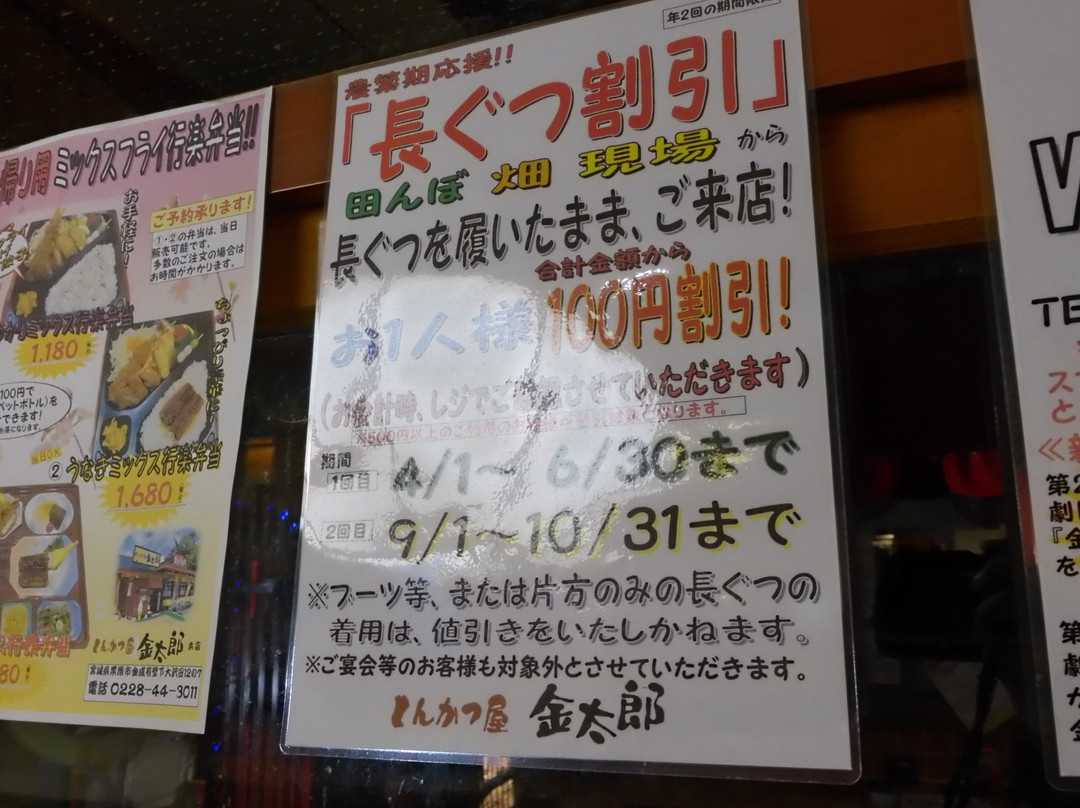 帰り用 ミックスフライ行楽弁当!!
お手軽に!
ご予約承ります!
①・②の弁当は、当日
販売可能です。
多数のご注文の場合は
お時間がかかります。
ミックス行楽弁当
1.180
100円で
ペットボトル)を
できます!
お茶になります。
当日OK
② うなぎミックス行楽弁当
1.680
行楽弁当
80
とんかつ屋 金太郎 本店
宮城県栗原市金成有壁下大沢田120-7
電話 0228-44-3011
年2回の期間限定
農繁期応援!!
「長ぐつ割引」
田んぼ 畑 現場から
長ぐつを履いたまま、ご来店!
合計金額から
お1人様 100円割引!
(お会計時、レジでご確認させていただきます)
※500円以上のご利用のお客様が割引対象となります。
期間
1回目 4/1〜 6/30まで
2回目 9/1〜10/31まで
※ブーツ等、または片方のみの長ぐつの
着用は、値引きをいたしかねます。
※ご宴会等のお客様も対象外とさせていただきます。
とんかつ屋 金太郎
W
TE
ス
と
≪新
第2
劇
『金
を
第
劇
か
金